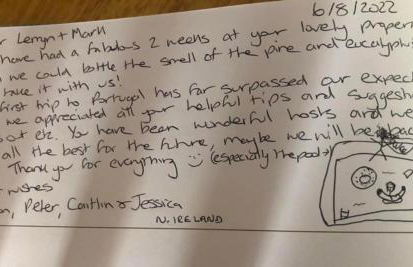 6/8/2022
r Lemyn + Mark
have had a fabulous 2 weeks at your lovely proper
we could bottle the smell of the pine and eucalyp
take it with us!
first trip to Portugal has far surpassed our expec
we appreciated all your helpful tips and suggesti
oot etc. You have been wonderful hosts and we
all the best for the future, maybe we will be back
Thank you for everything (especially the pool→)
wishes
n, Peter, Caitlin & Jessica
N. IRELAND